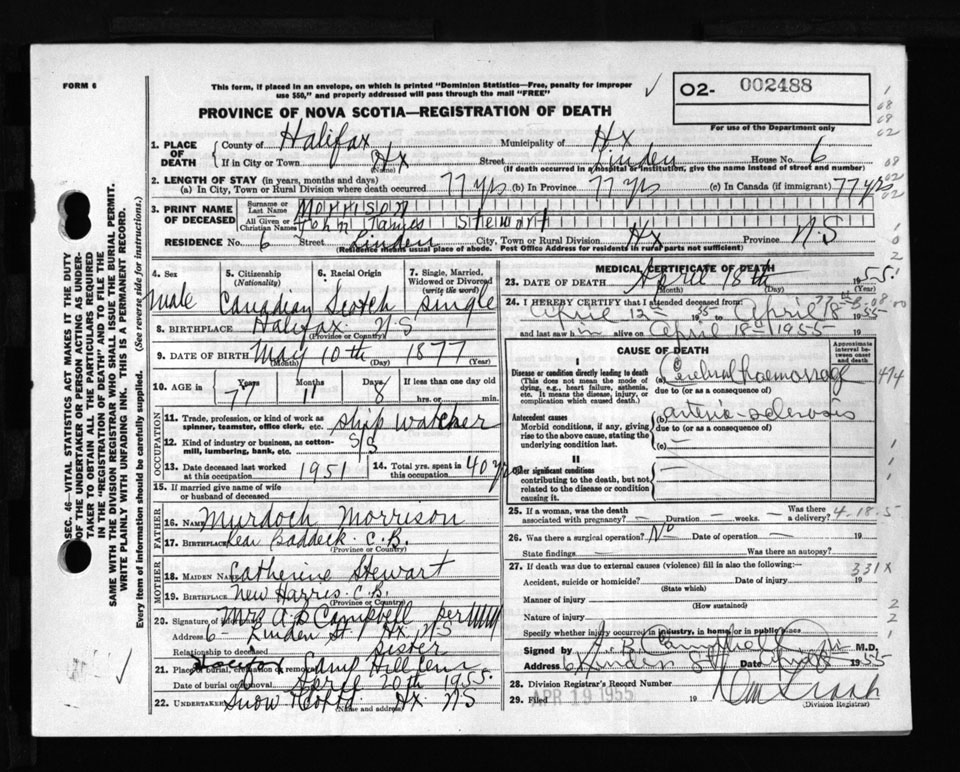 FORM 6
This form, if placed in an envelope, on which is printed "Dominion Statistics—Free, penalty for improper
use $50," and properly addressed will pass through the mail "FREE"
PROVINCE OF NOVA SCOTIA—REGISTRATION OF DEATH
O2- 002488
For use of the Department only
1. PLACE OF DEATH
County of Halifax Municipality of Hx
If in City or Town Hx Street Linden House No. 6
(Name) (If death occurred in a hospital or institution, give the name instead of street and number)
2. LENGTH OF STAY (in years, months and days)
(a) In City, Town or Rural Division where death occurred 77 yrs (b) In Province 77 yrs (c) In Canada (if immigrant) 77 yrs
3. PRINT NAME OF DECEASED
Surname or Last Name Morrison
All Given or Christian Names John James Stewart
RESIDENCE No. 6 Street Linden City, Town or Rural Division Hx Province N.S
(Residence means usual place of abode. Post Office Address for residents in rural parts not sufficient)
4. Sex Male
5. Citizenship (Nationality) Canadian
6. Racial Origin Scotch
7. Single, Married, Widowed or Divorced (write the word) Single
8. BIRTHPLACE Halifax N.S
(Province or Country)
9. DATE OF BIRTH May 10th 1877
(Month) (Day) (Year)
10. AGE in Years 77 Months 11 Days 8 If less than one day old hrs. or min.
OCCUPATION
11. Trade, profession, or kind of work as spinner, teamster, office clerk, etc. Ship watcher
12. Kind of industry or business, as cotton-mill, lumbering, bank, etc. S/S
13. Date deceased last worked at this occupation 1951 14. Total yrs. spent in this occupation 40 yrs
15. If married give name of wife or husband of deceased
FATHER
16. NAME Murdoch Morrison
17. BIRTHPLACE Near Baddeck C.B.
(Province or Country)
MOTHER
18. MAIDEN NAME Catherine Stewart
19. BIRTHPLACE New Harris C.B.
(Province or Country)
20. Signature of informant Mrs A B Campbell per
Address 6- Linden St. Hx NS
Relationship to deceased Sister
21. Place of burial, cremation or removal Camp Hill Cem
Date of burial or removal April 20th 1955.
22. UNDERTAKER Snow & Co Ltd Hx NS
(Name and address)
MEDICAL CERTIFICATE OF DEATH
23. DATE OF DEATH April 18th 1955
(Month) (Day)
24. I HEREBY CERTIFY that I attended deceased from:
April 12th 1955 to April 18th 1955
and last saw him alive on April 18th 1955 19
CAUSE OF DEATH
Approximate interval between onset and death
I
Disease or condition directly leading to death
(This does not mean the mode of dying, e.g., heart failure, asthenia, etc. It means the disease, injury, or complication which caused death.)
(a) Cerebral haemorrage
due to (or as a consequence of)
Antecedent causes
Morbid conditions, if any, giving rise to the above cause, stating the underlying condition last.
(b) arterio-sclerosis
due to (or as a consequence of)
(c) —
II
Other significant conditions contributing to the death, but not related to the disease or condition causing it.
25. If a woman, was the death associated with pregnancy? — Duration — weeks. — Was there a delivery? 4-18-5
26. Was there a surgical operation? No Date of operation — 19
State findings — Was there an autopsy?
27. If death was due to external causes (violence) fill in also the following:— 331X
Accident, suicide or homicide? Date of injury 19
(State which)
Manner of injury
(How sustained)
Nature of injury
Specify whether injury occurred in industry, in home, or in public place
Signed by A. B. Campbell M.D.
Address 6 Linden St Date April 18 1955
28. Division Registrar's Record Number
29. Filed APR 19 1955 19
(Division Registrar)
SEC. 46—VITAL STATISTICS ACT MAKES IT THE DUTY
OF THE UNDERTAKER OR PERSON ACTING AS UNDER-
TAKER TO OBTAIN ALL THE PARTICULARS REQUIRED
IN THE "REGISTRATION OF DEATH" AND TO FILE THE
SAME WITH THE DIVISION REGISTRAR WHO SHALL ISSUE THE BURIAL PERMIT.
WRITE PLAINLY WITH UNFADING INK. THIS IS A PERMANENT RECORD.
Every item of information should be carefully supplied. (See reverse side for instructions.)